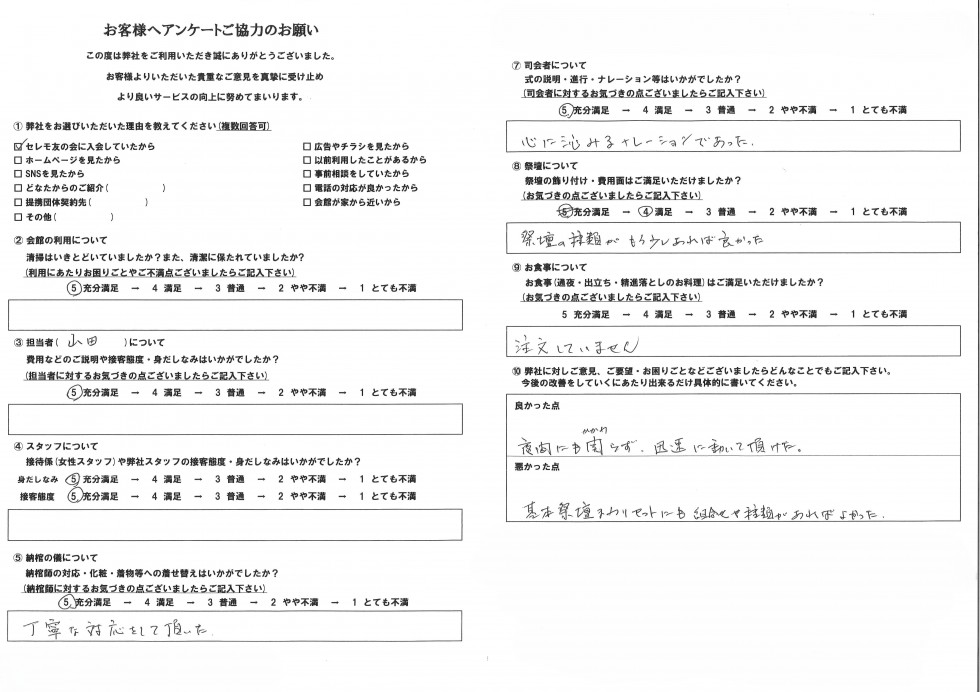 お客様へアンケートご協力のお願い
この度は弊社をご利用いただき誠にありがとうございました。
お客様よりいただいた貴重なご意見を真摯に受け止め
より良いサービスの向上に努めてまいります。
① 弊社をお選びいただいた理由を教えてください(複数回答可)
☑ セレモ友の会に入会していたから
□ ホームページを見たから
□ SNSを見たから
□ どなたからのご紹介( )
□ 提携団体契約先( )
□ その他( )
□ 広告やチラシを見たから
□ 以前利用したことがあるから
□ 事前相談をしていたから
□ 電話の対応が良かったから
□ 会館が家から近いから
② 会館の利用について
清掃はいきとどいていましたか?また、清潔に保たれていましたか?
(利用にあたりお困りごとやご不満点ございましたらご記入下さい)
5 充分満足 → 4 満足 → 3 普通 → 2 やや不満 → 1 とても不満
③ 担当者( 山田 )について
費用などのご説明や接客態度・身だしなみはいかがでしたか?
(担当者に対するお気づきの点ございましたらご記入下さい)
5 充分満足 → 4 満足 → 3 普通 → 2 やや不満 → 1 とても不満
④ スタッフについて
接待係(女性スタッフ)や弊社スタッフの接客態度・身だしなみはいかがでしたか?
身だしなみ 5 充分満足 → 4 満足 → 3 普通 → 2 やや不満 → 1 とても不満
接客態度 5 充分満足 → 4 満足 → 3 普通 → 2 やや不満 → 1 とても不満
⑤ 納棺の儀について
納棺師の対応・化粧・着物等への着せ替えはいかがでしたか?
(納棺師に対するお気づきの点ございましたらご記入下さい)
5 充分満足 → 4 満足 → 3 普通 → 2 やや不満 → 1 とても不満
丁寧な対応をして頂いた.
⑦ 司会者について
式の説明・進行・ナレーション等はいかがでしたか?
(司会者に対するお気づきの点ございましたらご記入下さい)
5 充分満足 → 4 満足 → 3 普通 → 2 やや不満 → 1 とても不満
心に沁みるナレーションであった.
⑧ 祭壇について
祭壇の飾り付け・費用面はご満足いただけましたか?
(お気づきの点ございましたらご記入下さい)
5 充分満足 → 4 満足 → 3 普通 → 2 やや不満 → 1 とても不満
祭壇の種類がもう少しあれば良かった
⑨ お食事について
お食事(通夜・出立ち・精進落としのお料理)はご満足いただけましたか?
(お気づきの点ございましたらご記入下さい)
5 充分満足 → 4 満足 → 3 普通 → 2 やや不満 → 1 とても不満
注文していません
⑩ 弊社に対しご意見、ご要望・お困りごとなどございましたらどんなことでもご記入下さい。
今後の改善をしていくにあたり出来るだけ具体的に書いてください。
良かった点
かかわ
夜間にも関らず、迅速に動いて頂けた。
悪かった点
基本祭壇まわりセットにも組合せや種類があればよかった.